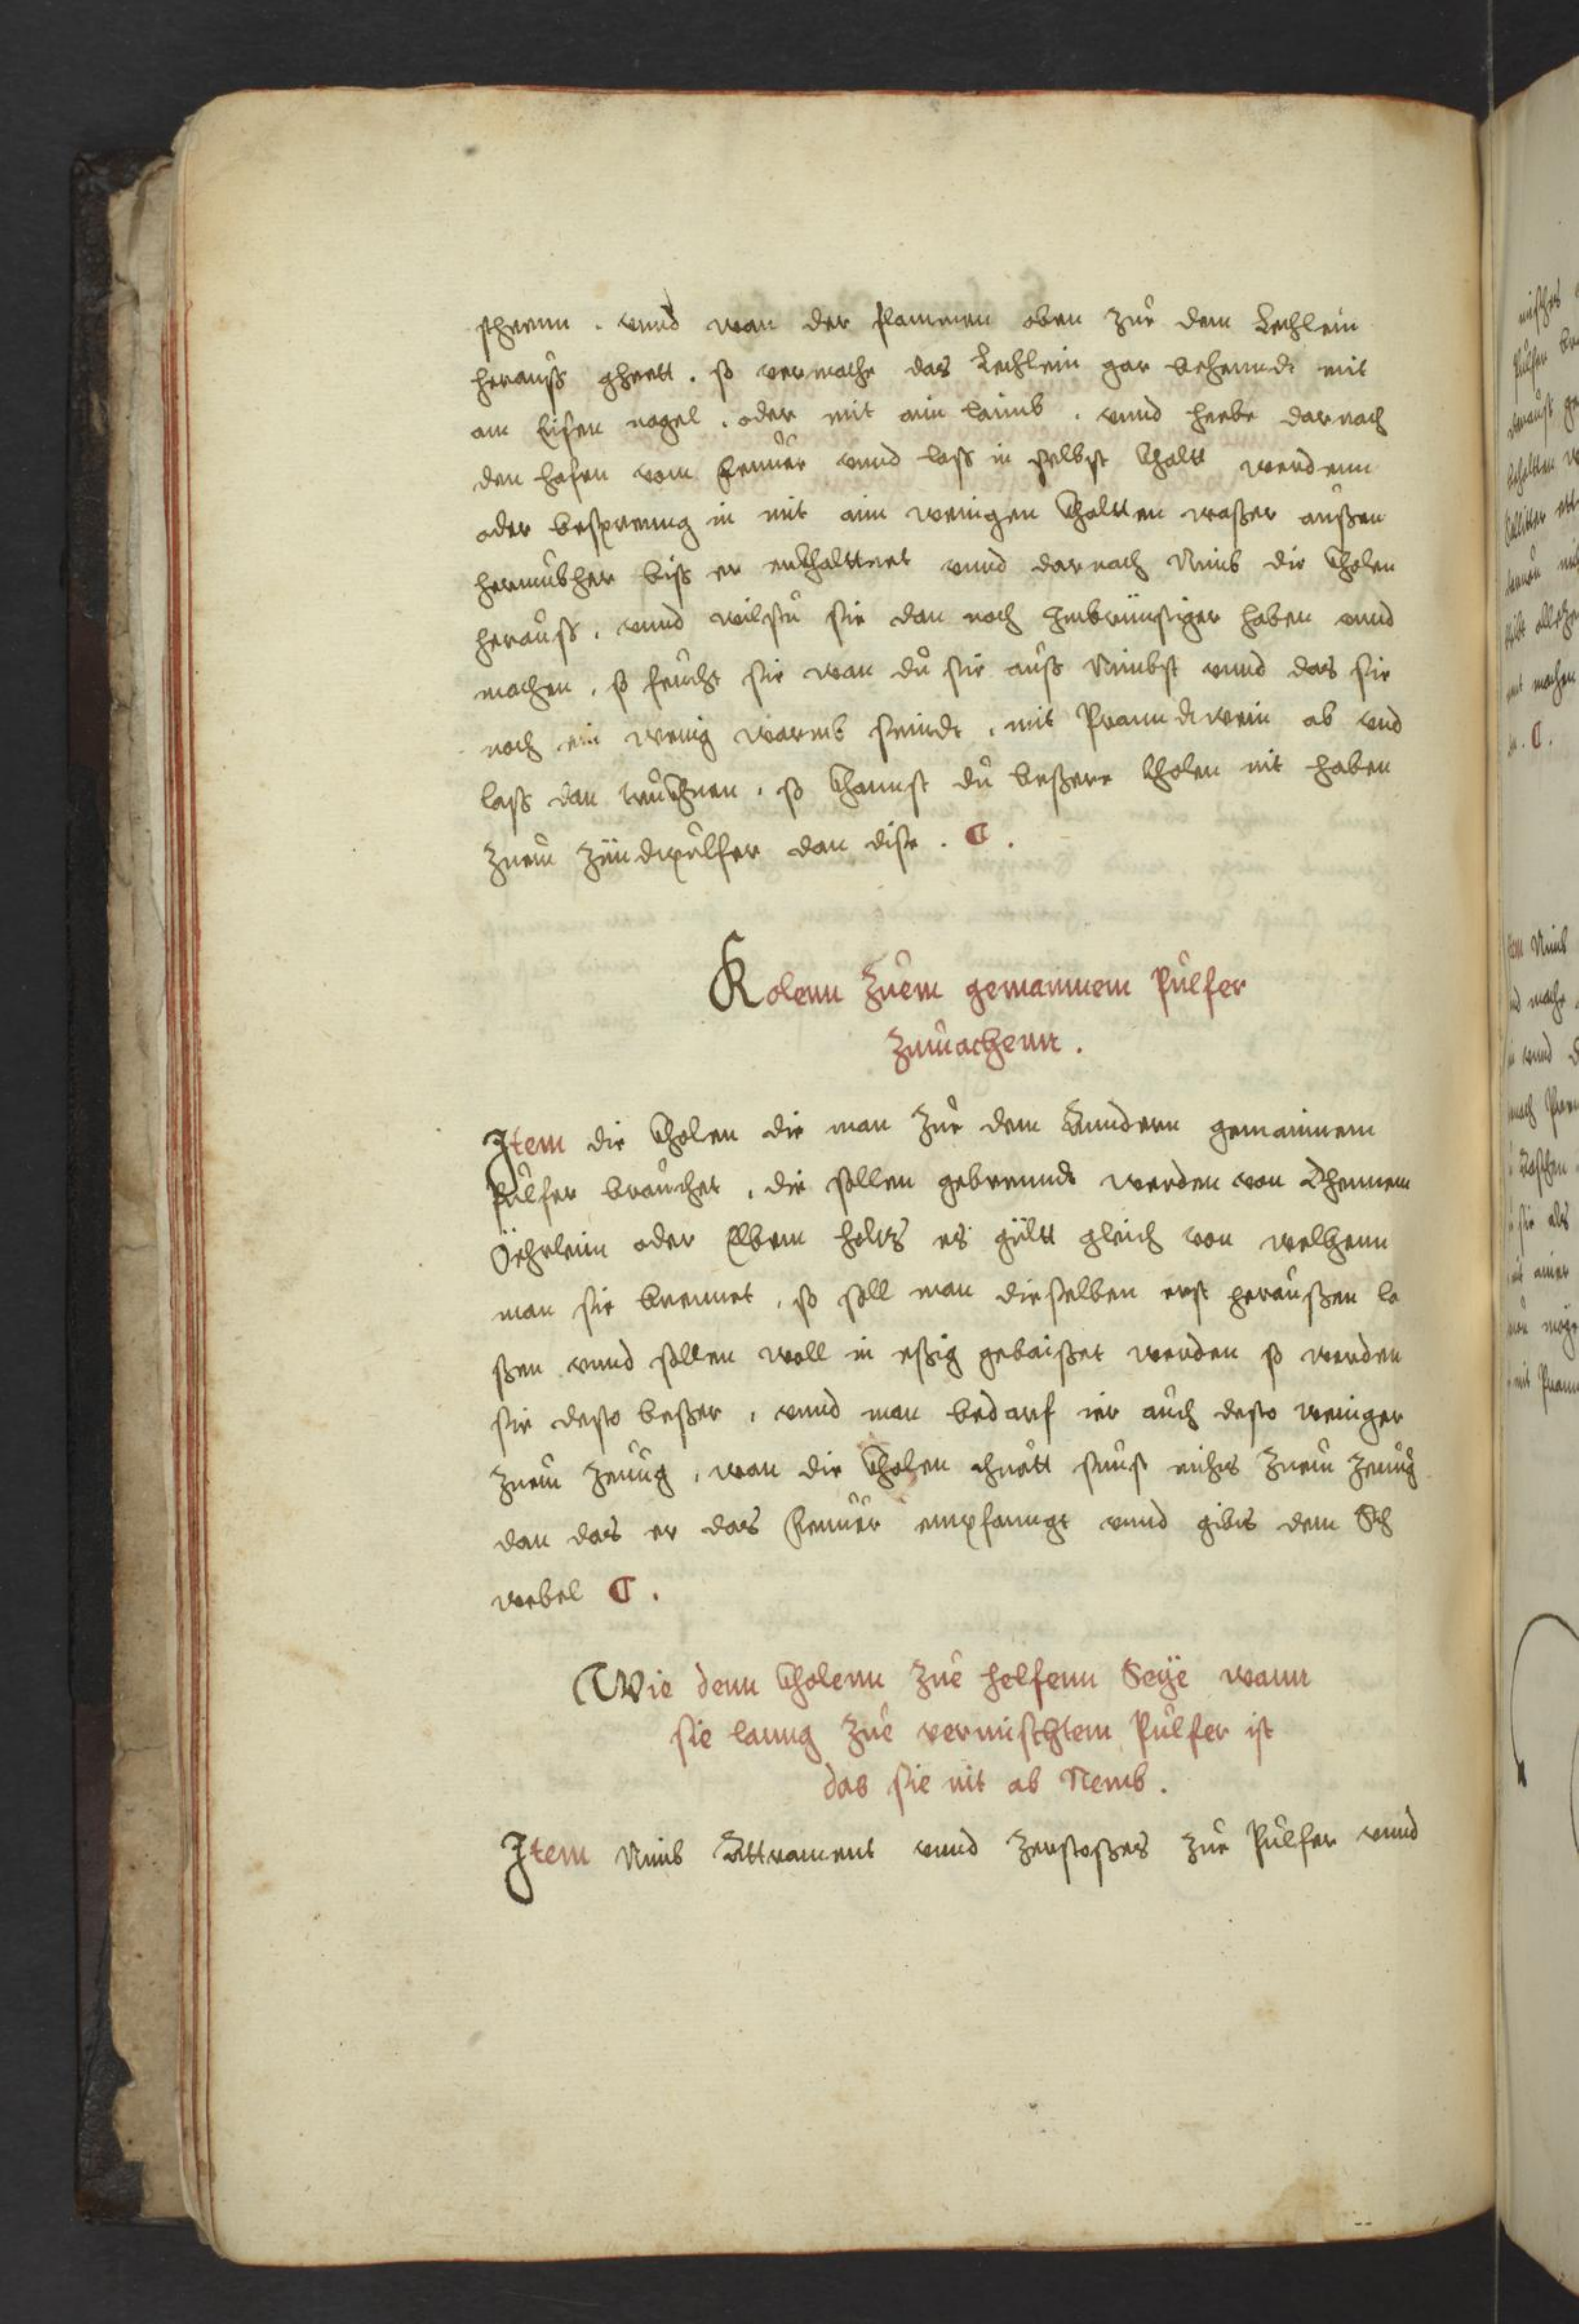 sthreun . vnnd wan der flammen oben zue dem Lechlein
herauß gheett . so vermache das Lechlein gar behenndt mit
am Eisen nagel . oder mit ain laimb . vnnd hebe darnach
den hafen vom feuuer vnnd laß in selbst khaltt werdenn
oder besprenng in mit ain wenigen khaltten waßer außen
herumbher biß er erkhalttnet vnnd darnach Nimb die kholen
herauß . vnnd wilstu sie dan noch Inbrünstiger haben vnnd
machen . so feucht sie wan du sie auß Nimbst vnnd das sie
noch ein wenig warmb seindt . mit Pranndtwein ab vnd
laß dan truckhnen . so khannst du beßere kholen nit haben
zuem zündtpulfer dan dise . C .
Kolenn zuem gemainnem Pulfer
zumachenn .
Item die kholen die man zue dem Anndern gemainnem
Pulfer brauchet , die sollen gebrenndt werden von khennem
Öehrlein oder Elbem holtz es gültt gleich von welhenn
man sie brennet , so soll man dieselben erst heraußen la
ßen vnnd sollen woll in eßig gebaißet werden so werden
sie desto beßer , vnnd man bedarf ier auch desto weniger
zuem zeuug , wan die kholen thuott sunst nichts zuem zeuug
dan das er das feuuer empfanngt vnnd gibts dem Sch
webel C .
Wie denn kholenn zue helfenn Seye wann
sie lanng zue vermischtem Pulfer ist
das sie nit ab Nemb .
Item Nimb Attrament vnnd zerstoßes zue Pulfer vnnd